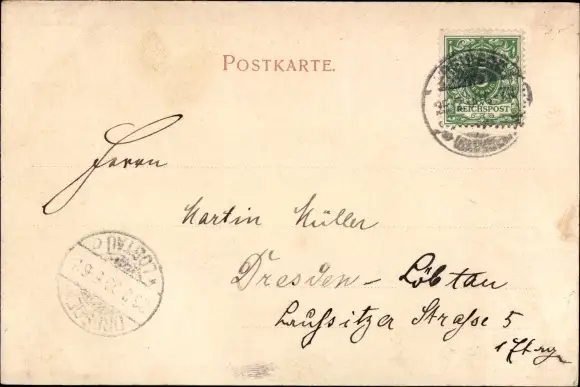 POSTKARTE.
5
REICHSPOST
Herrn
Martin Müller
Dresden - Löbtau
Laußitzer Straße 5
LÖBTAU